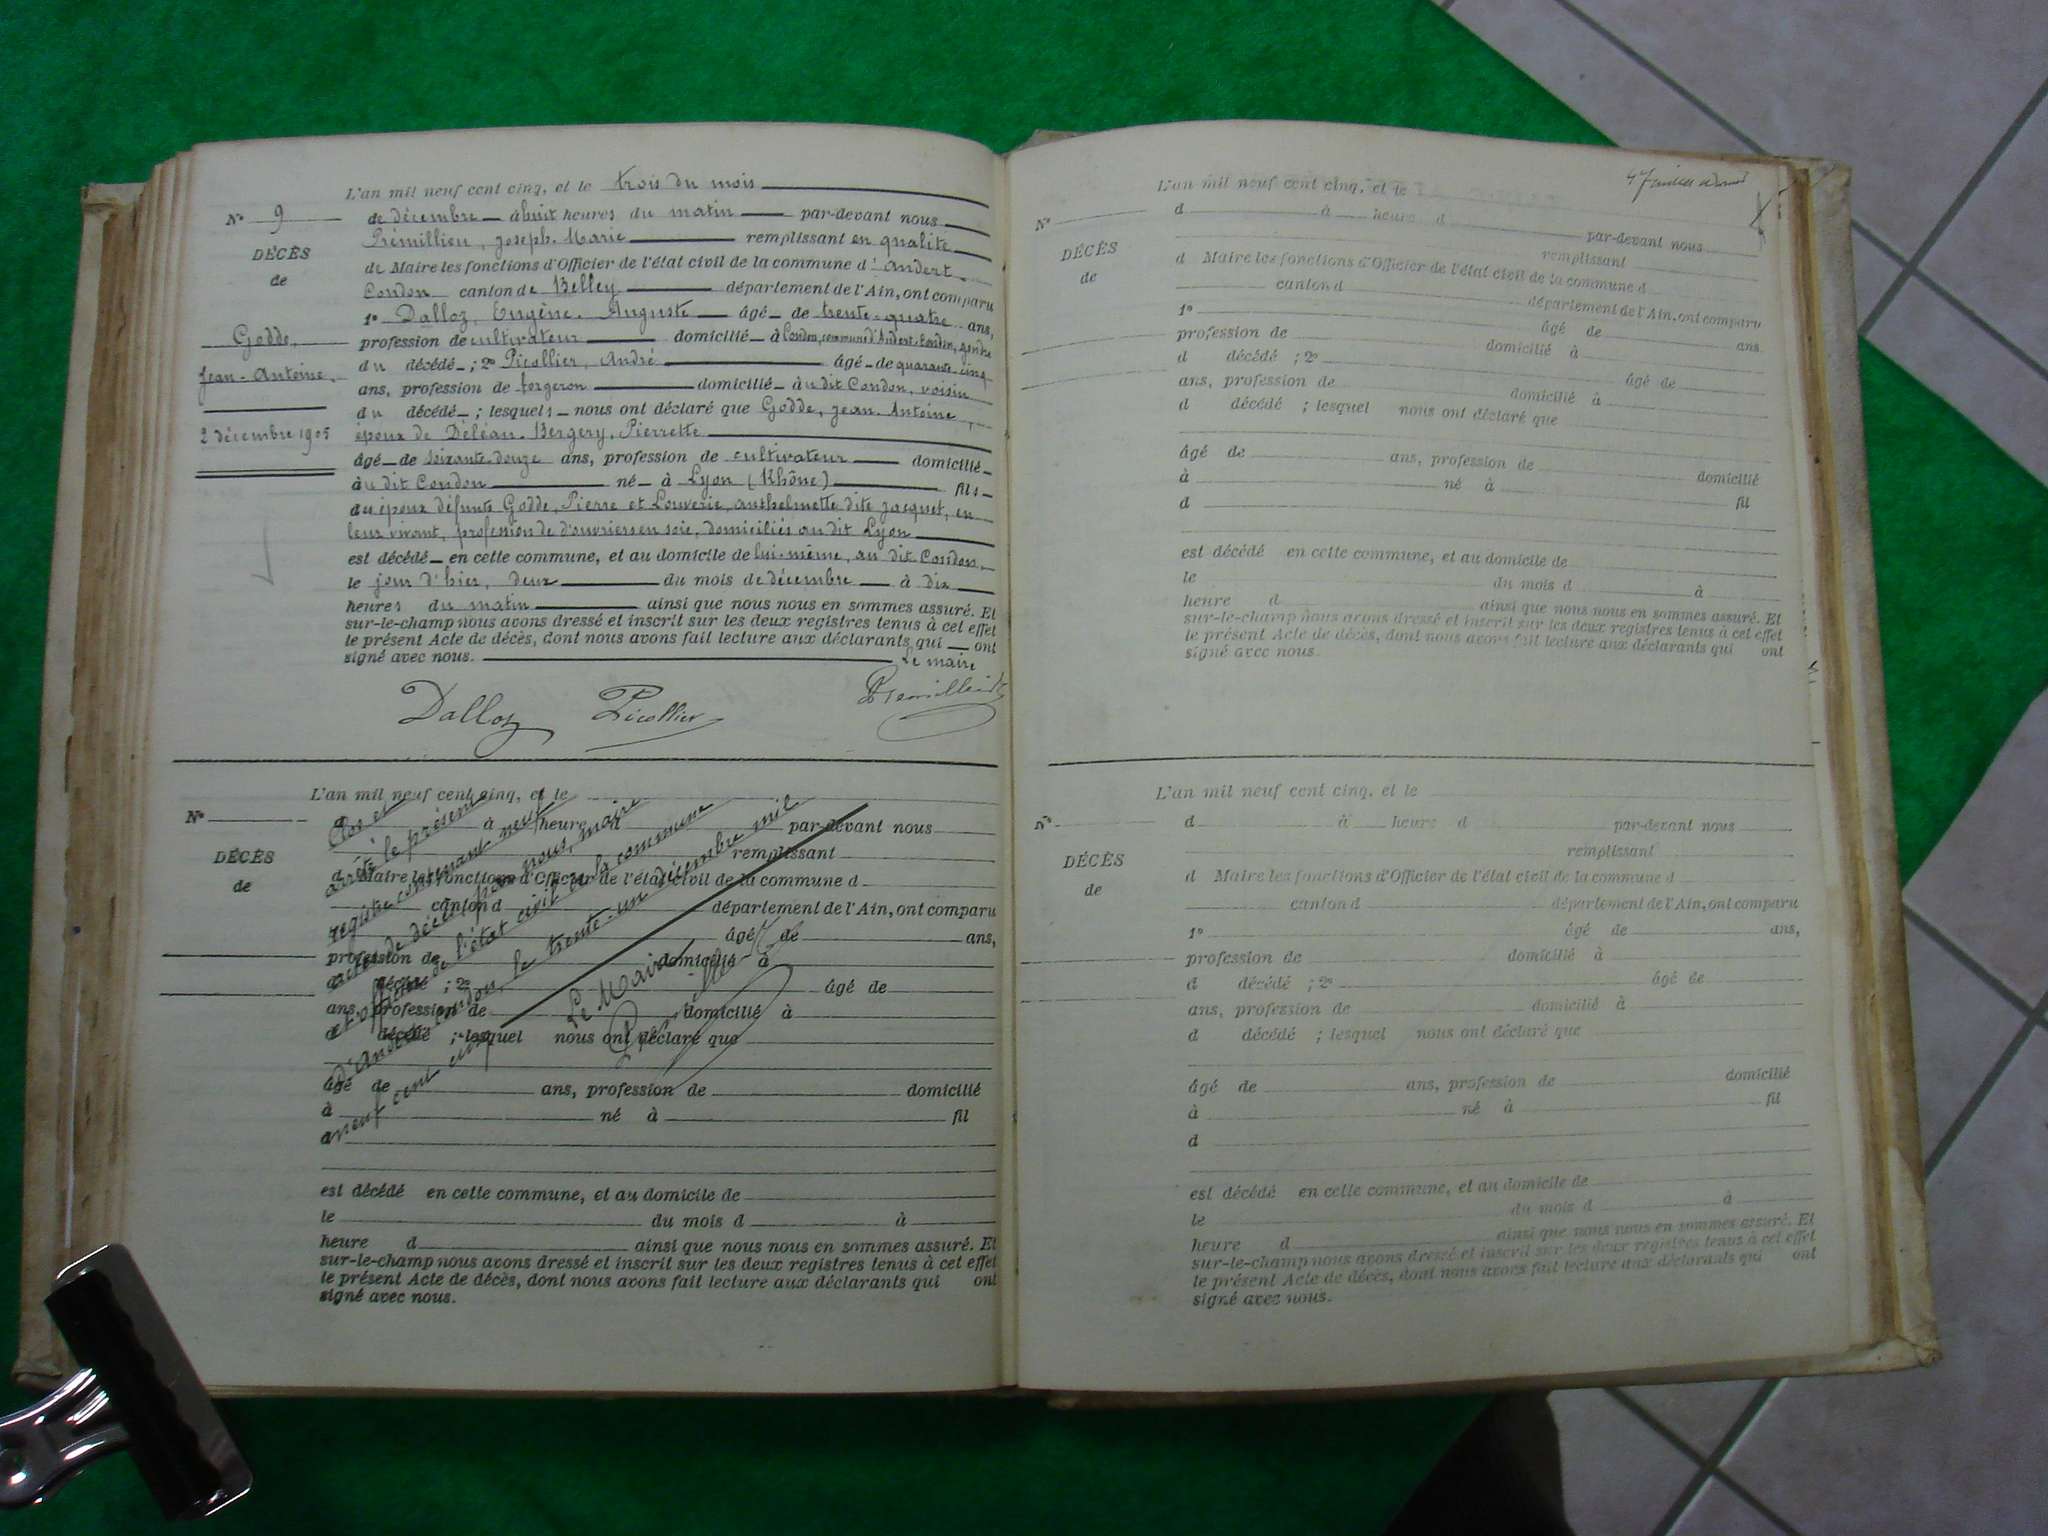 L'an mil neuf cent cinq, et le trois du mois
N° 9
de décembre à huit heures du matin par-devant nous
Prémillieu, Joseph-Marie remplissant en qualité
DÉCÈS
de Maire les fonctions d'Officier de l'état civil de la commune d'Andert
de
Condon canton de Belley département de l'Ain, ont comparu
1° Dalloz, Eugène-Auguste âgé de trente-quatre ans,
Godde,
profession de cultivateur domicilié à Condon, commune d'Andert-Condon, gendre
Jean-Antoine,
du décédé ; 2° Picollier, André âgé de quarante-cinq
ans, profession de forgeron domicilié au dit Condon, voisin
du décédé ; lesquels nous ont déclaré que Godde, Jean-Antoine,
2 décembre 1905
époux de Déléan-Bergery, Pierrette
âgé de soixante-douze ans, profession de cultivateur domicilié
au dit Condon né à Lyon (Rhône) fils
du époux défunts Godde, Pierre et Louverie, anthelmette dite Jacquet, en
leur vivant, profession de d'ouvriers en soie, domiciliés au dit Lyon
est décédé en cette commune, et au domicile de lui-même, au dit Condon,
le jour d'hier, deux du mois de décembre à dix
heures du matin ainsi que nous nous en sommes assuré. Et
sur-le-champ nous avons dressé et inscrit sur les deux registres tenus à cet effet
le présent Acte de décès, dont nous avons fait lecture aux déclarants qui ont
signé avec nous. Le maire
Dalloz Picollier
L'an mil neuf cent cinq, et le
N°
d à heure d par-devant nous
remplissant
DÉCÈS
d Maire les fonctions d'Officier de l'état civil de la commune d
de
canton d département de l'Ain, ont comparu
âgé de ans,
profession de domicilié à
d décédé ; 2° âgé de
ans, profession de domicilié à
d décédé ; lesquel nous ont déclaré que
âgé de ans, profession de domicilié
à né à fil
d
est décédé en cette commune, et au domicile de
le du mois d à
heure d ainsi que nous nous en sommes assuré. Et
sur-le-champ nous avons dressé et inscrit sur les deux registres tenus à cet effet
le présent Acte de décès, dont nous avons fait lecture aux déclarants qui ont
signé avec nous.
Clos et
arrêté le présent
registre contenant neuf
actes de décès par nous, maire
et officier de l'état civil de la commune
d'Andert-Condon, le trente-un décembre mil
neuf cent cinq
Le Maire
L'an mil neuf cent cinq, et le
N°
d à heure d par-devant nous
DÉCÈS
remplissant
de
d Maire les fonctions d'Officier de l'état civil de la commune d
canton d département de l'Ain, ont comparu
1° âgé de ans
profession de domicilié à
d décédé ; 2° âgé de
ans, profession de domicilié à
d décédé ; lesquel nous ont déclaré que
âgé de ans, profession de domicilié
à né à fil
d
est décédé en cette commune, et au domicile de
le du mois d à
heure d ainsi que nous nous en sommes assuré. Et
sur-le-champ nous avons dressé et inscrit sur les deux registres tenus à cet effet
le présent Acte de décès, dont nous avons fait lecture aux déclarants qui ont
signé avec nous.
L'an mil neuf cent cinq, et le
N°
d à heure d par-devant nous
remplissant
DÉCÈS
d Maire les fonctions d'Officier de l'état civil de la commune d
de
canton d département de l'Ain, ont comparu
1° âgé de ans,
profession de domicilié à
d décédé ; 2° âgé de
ans, profession de domicilié à
d décédé ; lesquel nous ont déclaré que
âgé de ans, profession de domicilié
à né à fil
d
est décédé en cette commune, et au domicile de
le du mois d à
heure d ainsi que nous nous en sommes assuré. Et
sur-le-champ nous avons dressé et inscrit sur les deux registres tenus à cet effet
le présent Acte de décès, dont nous avons fait lecture aux déclarants qui ont
signé avec nous.